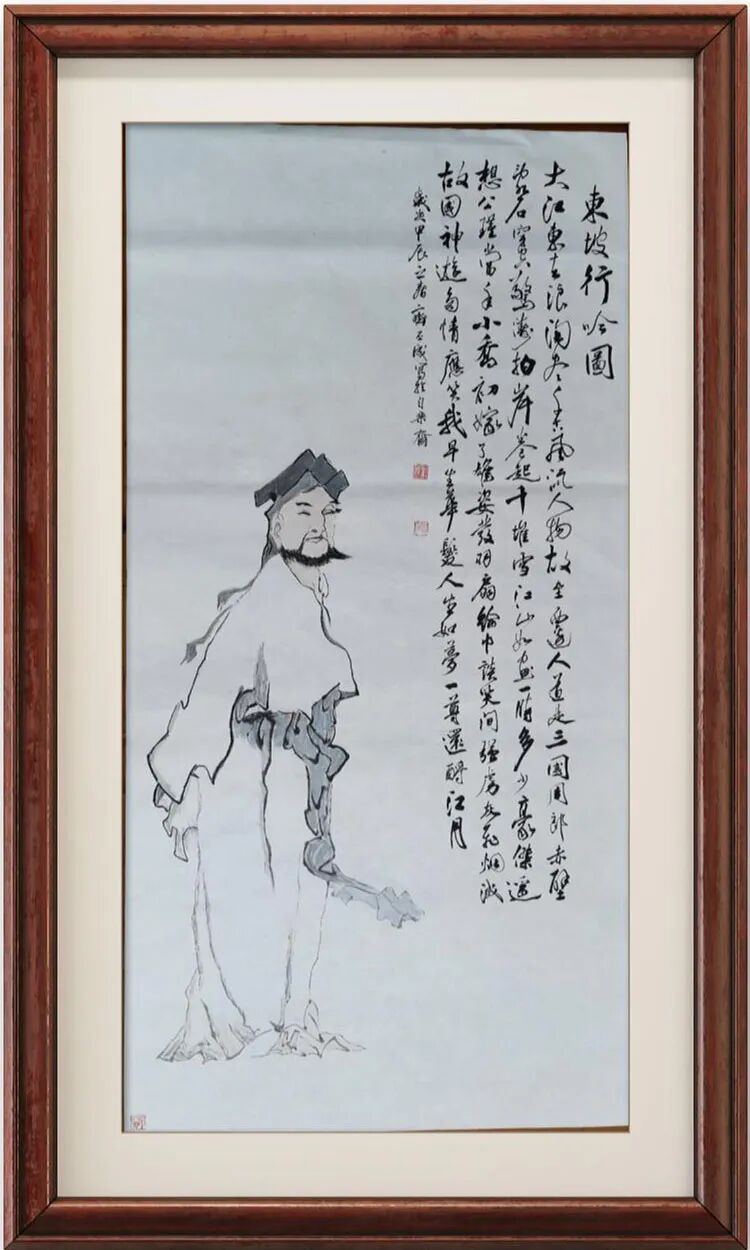 東坡行吟圖
大江東去浪淘尽千古風流人物故垒邊人道是三國周郎赤壁
乱石穿空驚濤拍岸卷起千堆雪江山如画一時多少豪傑遥
想公瑾當年小喬初嫁了雄姿發羽扇綸巾談笑间强虏灰飛烟滅
故國神遊多情應笑我早生華髮人生如夢一尊還酹江月
歲次甲辰之春齊成寫於自樂齋